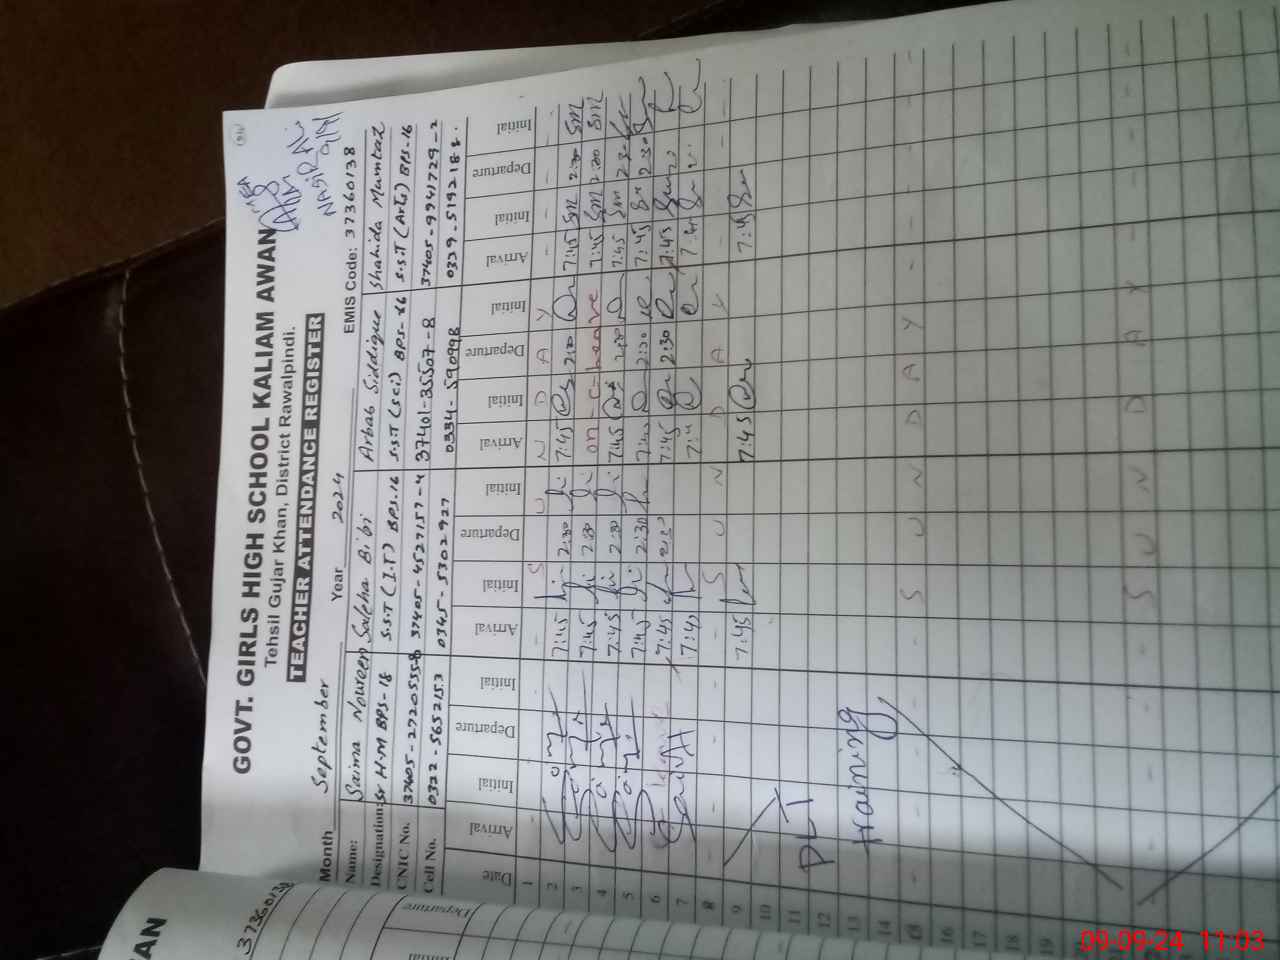 GOVT. GIRLS HIGH SCHOOL KALIAM AWAN
Tehsil Gujar Khan, District Rawalpindi.
TEACHER ATTENDANCE REGISTER
MEA
NASIR Ali
Month September Year 2024 EMIS Code: 37360138
Name: Saima Noureen Saleha Bibi Arbab Siddique Shahida Mumtaz
Designation: Sr H.M BPS-18 S.S.T (I.T) BPS.16 S.S.T (Sci) BPS-16 S.S.T (Arts) BPS-16
CNIC No. 37405-2720535-8 37405-4527157-4 37401-35507-8 37405-9941729-2
Cell No. 0332-5652153 0345-5302927 0334-590998 0339-5192188.
Date Arrival Initial Departure Initial Arrival Initial Departure Initial Arrival Initial Departure Initial Arrival Initial Departure Initial
1 - S U N D A Y - - - -
2 7:45 2:30 7:45 2:30 7:45 Sm 2:30 Sm
3 7:45 2:30 on-c-leave 7:45 Sm 2:30 Sm
4 7:45 2:30 7:45 2:30 7:45 Sm 2:30
5 7:45 2:30 2:30 7:45 2:30
6 7:45 2:30 7:45 2:30 7:45
7 7:45
8 - - S U N D A Y - -
9 7:45 7:45 7:45
10
11 PLT
12
13 training
14
15 - - - - S U N D A Y - - - -
16
17
18
19
S U N D A Y
37360138
Departure
Initial
09-09-24 11:03